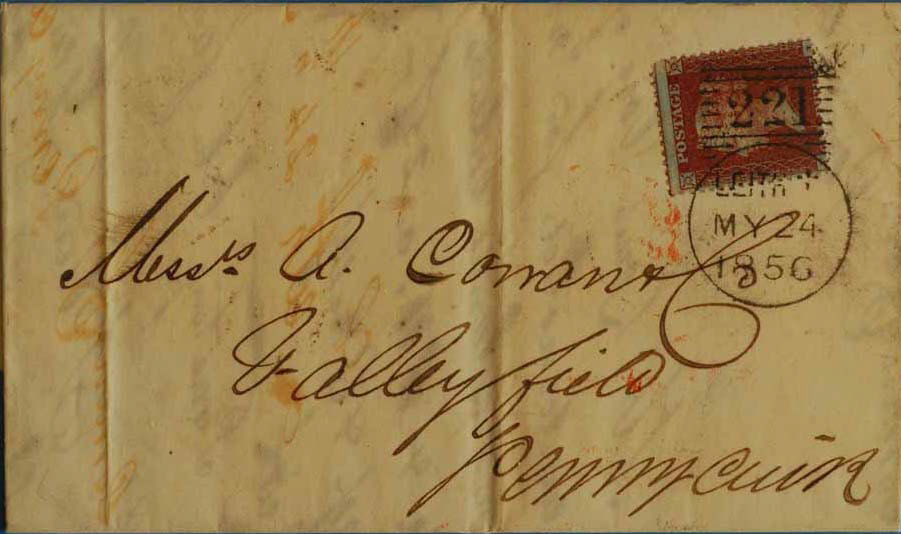 POSTAGE
221
LEITH
MY 24
1856
Messrs A. Cowan &
Valleyfield
Pennycuick